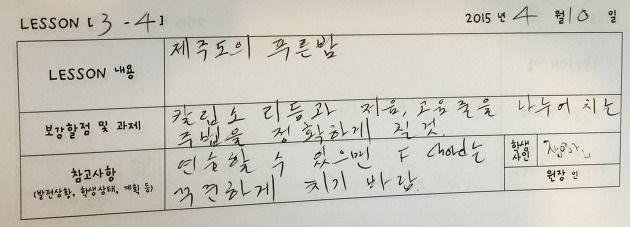 LESSON [3-4] 2015년 4월 10일
LESSON 내용
제주도의 푸른밤
보강할점 및 과제
칼립소 리듬과 저음, 고음 줄을 나누어 치는
주법을 정확하게 칠것.
참고사항
(발전상황, 학생상태, 계획 등)
연습할 수 있으면 F chord는
꾸준하게 치기 바람
학생
사인
원장 인